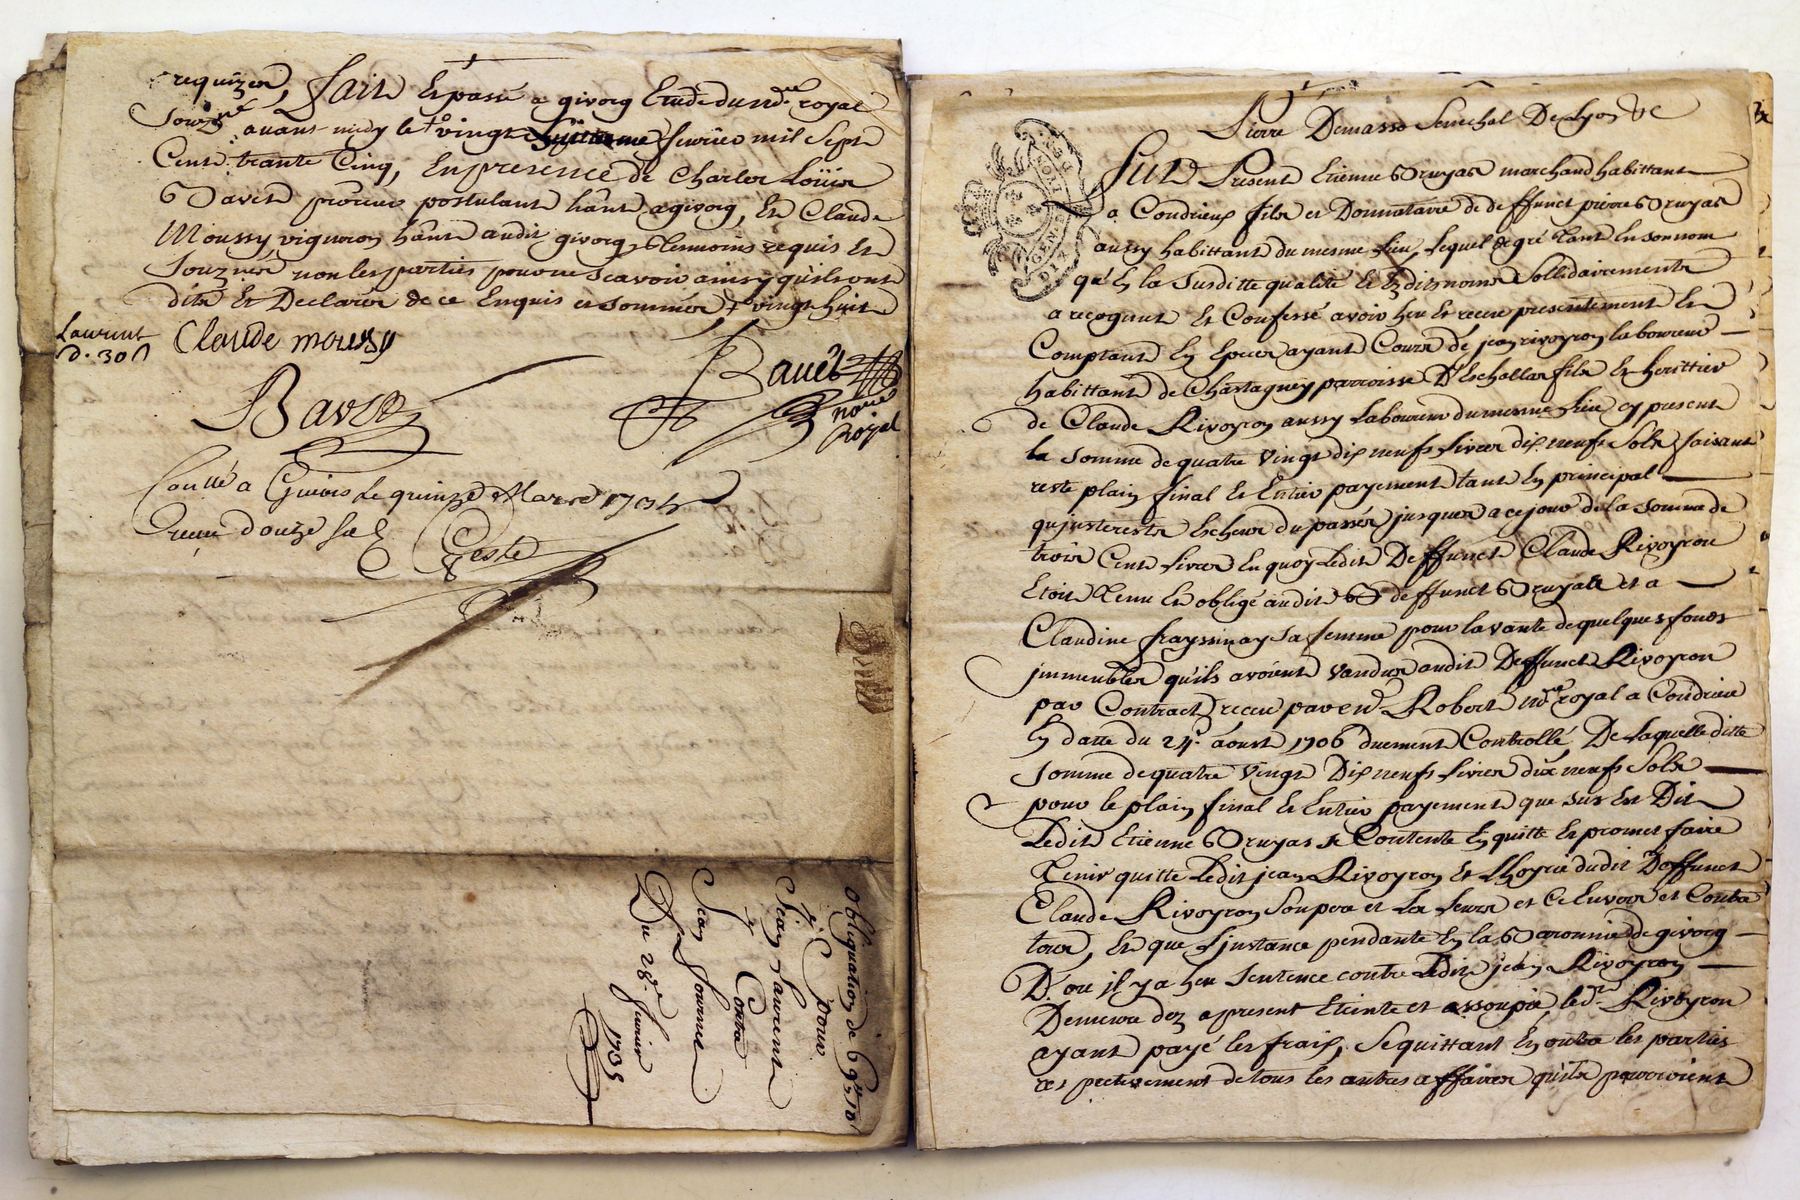 requizes, fait et passé a givors Etude du no.re royal
souz.né avant midy le + vingt huitieme fevrier mil sept
Cent trante Cinq, En presence de Charles Loüis
Bavet procureur postulant h̃ant a givors, Et Claude
Moussy vigneron h̃ant audit givors tesmoins requis et
souznés non les parties pour ne scavoir ainsy qu'ils ont
dits Et Declarés de ce Enquis et sommés + vingt huit
Laurent
d. 30 s
Claude moussy
Bavet
Bavet
no.re
royal
Con.llé a Givors le quinze Mars 1735
Receu douze sols
Geste
Obliguation de 69 lt 10 s
Pour
Sieur Laurent
Contre
Jean
Du 28.e fevrier
1735
Pierre Demasso Senechal De Lyon &c
GEN. DE LYON
DIX DEN
Fut Present Etienne Bruyas marchand habittant
a Condrieu, fils et Donnataire de deffunct pierre Bruyas
aussy habittant du mesme lieu, Lequel de gré tant En son nom
qu'En la susditte qualité Et Esdits noms Sollidairement
a recognut Et Confessé avoir heu Et receu presentement Et
Comptant En Especes ayant Cours de jean rivoyron laboureur
habittant de Chastagney parroisse D'Eschallas fils Et herittier
de Claude Rivoyron aussy Laboureur du mesme lieu cy present
la somme de quatre vingt dix neufs livres dix neufs sols faisant
reste plain final Et Entier payement tant En principal
qu'jnterests Escheus du passés jusques a ce jour de la somme de
trois Cent livres En quoy Ledit Deffunct Claude Rivoyron
Etoit Tenu Et obligé audit deffunct Bruyas et a
Claudine frayssinay sa femme pour la vante de quelques fonds
jmmeubles qu'ils avoient vandus audit Deffunct Rivoyron
par Contract receu par Me Robert no.re royal a Condrieu
En datte du 24.e aoust 1706 duement Controllé, De laquelle ditte
somme de quatre vingt Dix neufs livres dix neufs sols
pour le plain final Et Entier payement que sus Est Dit
Ledit Etienne Bruyas se Contente En quitte Et promet faire
Tenir quitte Ledit jean Rivoyron Et L'hoyrie dudit Deffunct
Claude Rivoyron son pere et Les Leurs et Ce Envers et Contre
tous, Et que L'jnstance pendante En la Baronnie de givors
D'ou jl y a heu sentence contre Ledit jean Rivoyron
Demeure dez a present Eteinte et assoupie, led.t Rivoyron
ayant payé les frais, Se quittant En outre les parties
respectivement de tous les autres affaires qu'ils pourroient